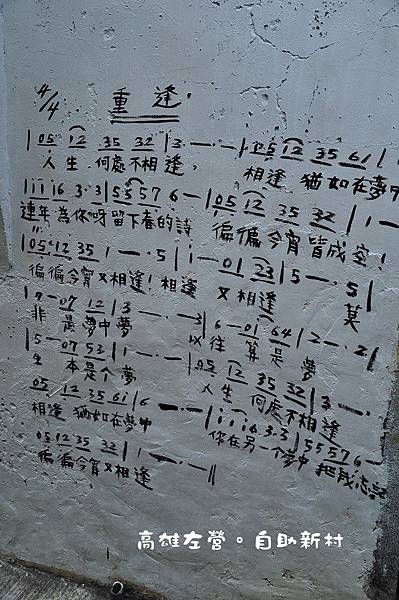 4/4 重逢.
| 05 12 35 32 | 3 - · - · | 05 12 35 61 |
人生何處不相逢, 相逢猶如在夢中
1 1 1 16 3· 3 | 55 57 6 - | 05 12 35 32 | 1 - -
連年為你呀留下春的詩 偏偏今宵皆成空!
| 05 12 35 | 1 - · 5 | 1 - 01 23 | 5 - · 5 |
偏偏今宵又相逢!相逢又相逢 莫
| 7 - 07 12 | 3 - · - 3 | 6 - 01 64 | 2 - · 2 |
非是夢中夢 以往算是夢
| 5 - 07 53 | 1 - · - · | 05 12 35 32 | 3 - ·
生本是个夢 人生何處不相逢
05 12 35 61 | 6 - · - · | 1 1 1 16 3· 3 | 55 57 6 -
相逢猶如在夢中 你在另一个夢中把我忘記
05 12 35 32 | 1 - · - · ||
偏偏今宵又相逢
高雄左營。自助新村